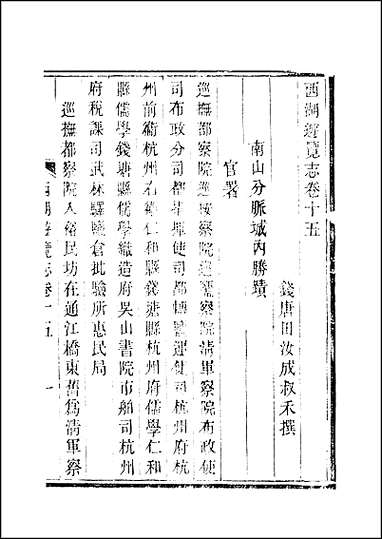 西湖遊覽志卷十五
錢唐田汝成叔禾撰
南山分脈城內勝蹟
官署
巡撫都察院巡按察院巡鹽察院清軍察院布政使
司布政分司都指揮使司都轉鹽運使司杭州府杭
州前衛杭州右衛仁和縣錢塘縣杭州府儒學仁和
縣儒學錢塘縣儒學織造府吳山書院市舶司杭州
府稅課司武林驛鹽倉批驗所惠民局
巡撫都察院入裕民坊在通江橋東舊為清軍察
西湖遊覽志卷十五 一